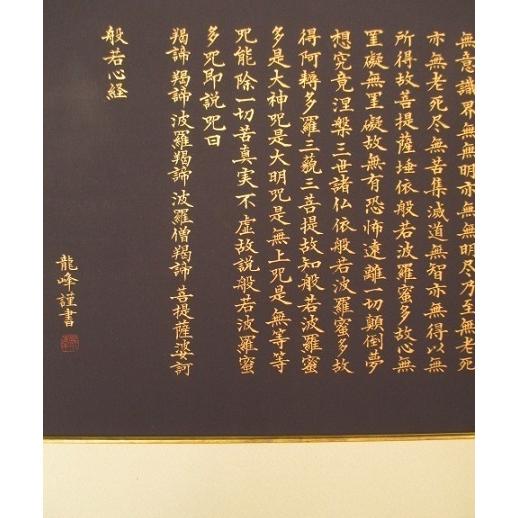 無意識界無無明亦無無明尽乃至無老死
亦無老死尽無苦集滅道無智亦無得以無
所得故菩提薩埵依般若波羅蜜多故心無
罣礙無罣礙故無有恐怖遠離一切顛倒夢
想究竟涅槃三世諸仏依般若波羅蜜多故
得阿耨多羅三藐三菩提故知般若波羅蜜
多是大神咒是大明咒是無上咒是無等等
咒能除一切苦真実不虚故説般若波羅蜜
多咒即説咒曰
羯諦羯諦波羅羯諦波羅僧羯諦菩提薩婆訶
般若心経
龍峰謹書